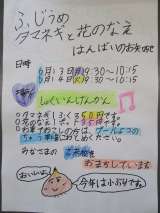 ふじうめ
タマネギと花のなえ
はんばいのお知らせ
日時
6月3日(月)9:30～10:15
6月4日(火)9:30～10:15
場所
しょくいんげんかん
タマネギは1ふくろ50円です。
花のなえは、1つ35円です。
ちゅう車場にとめてください。
みなさまの
おまちしています。
おいしいよ!
今年は小ぶりです。